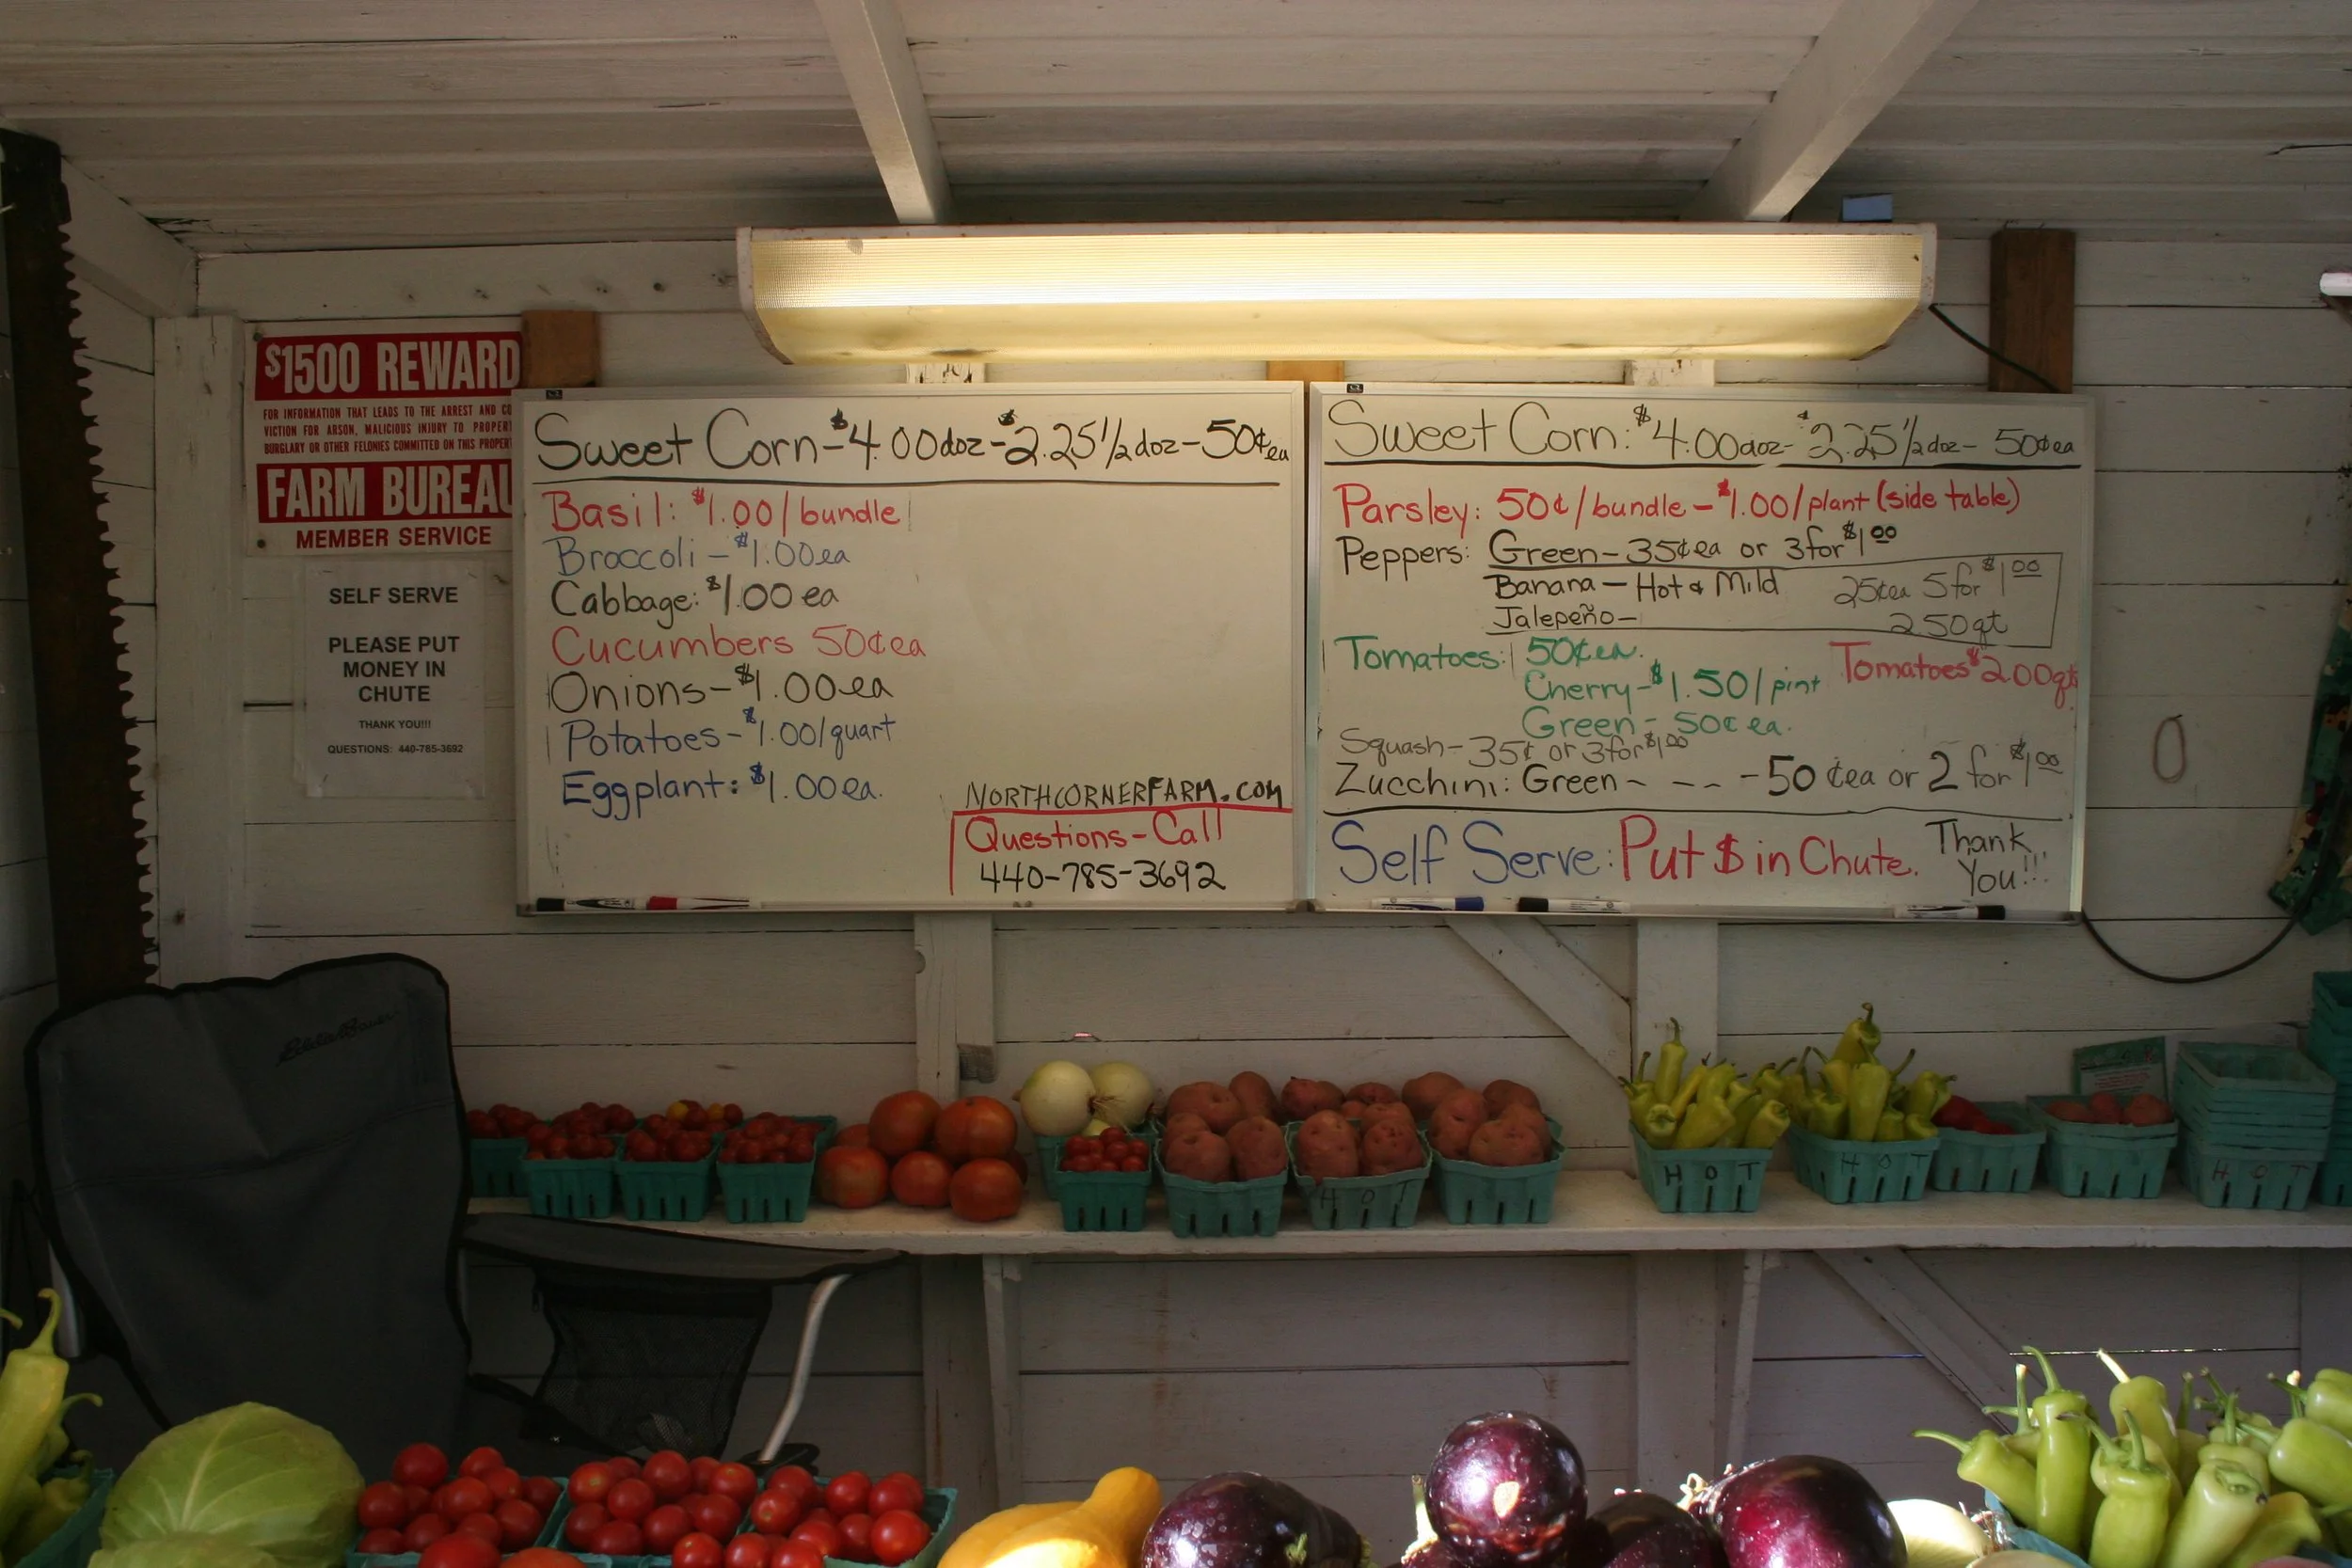 $1500 REWARD
FOR INFORMATION THAT LEADS TO THE ARREST AND CO
VICTION FOR ARSON, MALICIOUS INJURY TO PROPER
BURGLARY OR OTHER FELONIES COMMITTED ON THIS PROPER
FARM BUREAU
MEMBER SERVICE
SELF SERVE
PLEASE PUT
MONEY IN
CHUTE
THANK YOU!!!
QUESTIONS: 440-785-3692
Sweet Corn-$4.00doz-$2.25 1/2 doz-50¢ea
Basil: $1.00/bundle
Broccoli-$1.00ea
Cabbage: $1.00 ea
Cucumbers 50¢ea
Onions-$1.00ea
Potatoes-$1.00/quart
Eggplant: $1.00ea.
NORTHCORNERFARM.COM
Questions-Call
440-785-3692
Sweet Corn: $4.00doz-$2.25 1/2 doz- 50¢ea
Parsley: 50¢/bundle-$1.00/plant (side table)
Peppers: Green-35¢ea or 3for$1.00
Banana-Hot & Mild 25¢ea 5for$1.00
Jalepeño- 2.50qt
Tomatoes: 50¢ea. Tomatoes $2.00qt.
Cherry-$1.50/pint
Green-50¢ea.
Squash-35¢ or 3for$1.00
Zucchini: Green- - - -50¢ea or 2 for $1.00
Self Serve: Put $ in Chute. Thank
You!!!
Eddie Bauer
HOT
HOT
HOT
HOT